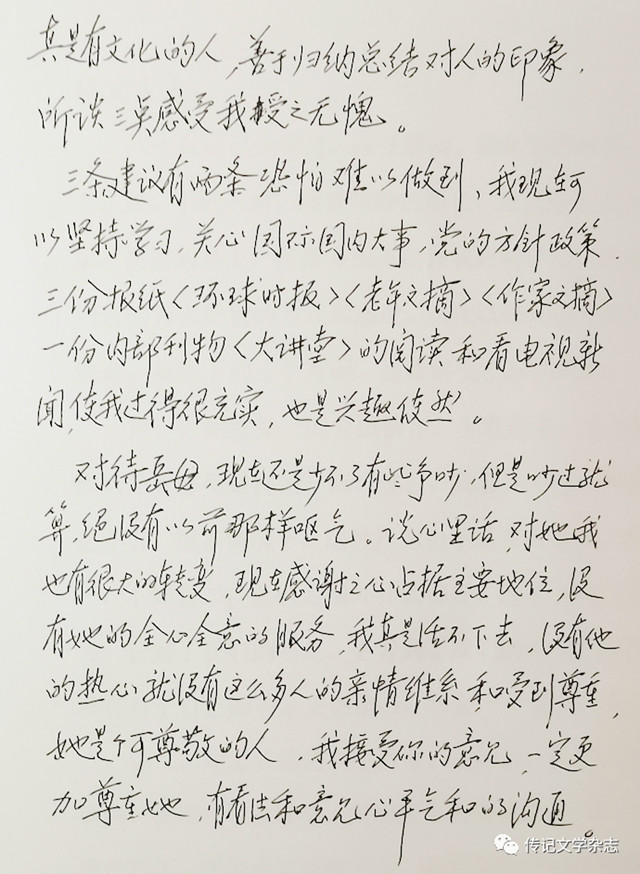 真是有文化的人，善于归纳总结对人的印象，
所谈三点感受我授之无愧。
三条建议有两条恐怕难以做到，我现在可
以坚持学习，关心国际国内大事，党的方针政策，
三份报纸〈环球时报〉〈老年文摘〉〈作家文摘〉
一份内部刊物〈大讲堂〉的阅读和看电视新
闻，使我过得很充实，也是兴趣使然。
对待岳母，现在还是少不了有些争吵，但是吵过就
算，绝没有以前那样呕气。说心里话，对她我
也有很大的转变，现在感谢之心占据主要地位，没
有她的全心全意的服务，我真是活不下去，没有他
的热心就没有这么多人的亲情维系和受到尊重，
她是个可尊敬的人，我接受你的意见，一定更
加尊重她，有看法和意见心平气和的沟通。
传记文学杂志